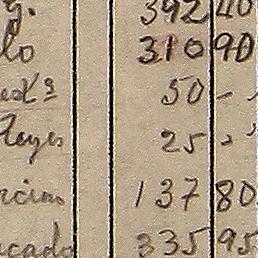 392 40
lo 310 90
50 - -
Reyes 25 - -
137 80
cado 335 95